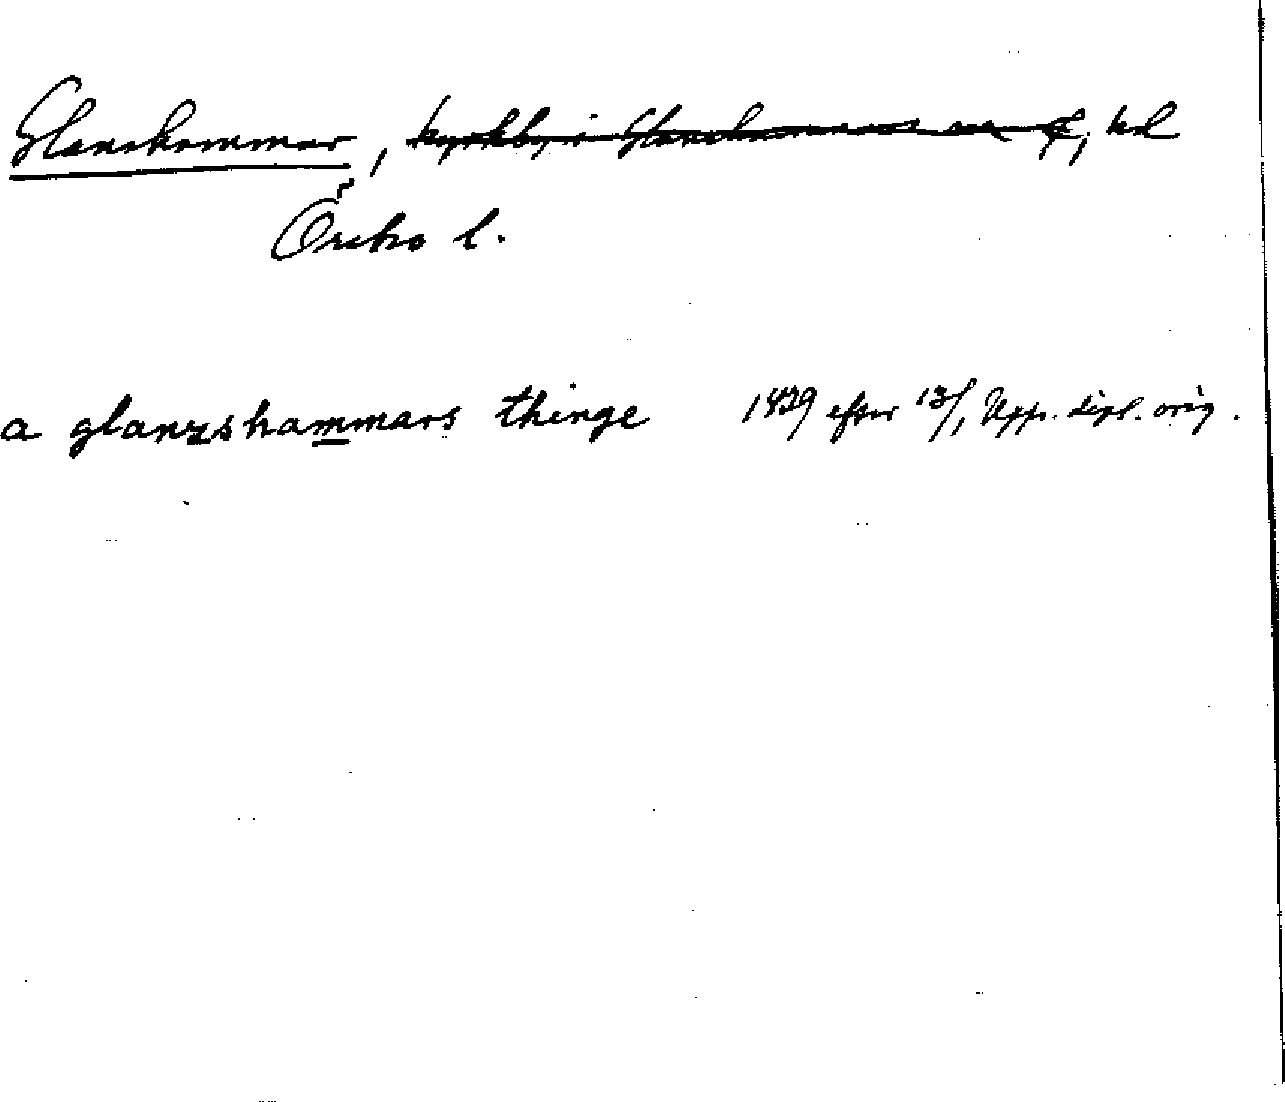 Glanshammar, kyrkby i Glanshammars sn o, hd
Örebro l.
a glanzshammars thinge 1439 efter 13/1 Upp. dipl. orig.